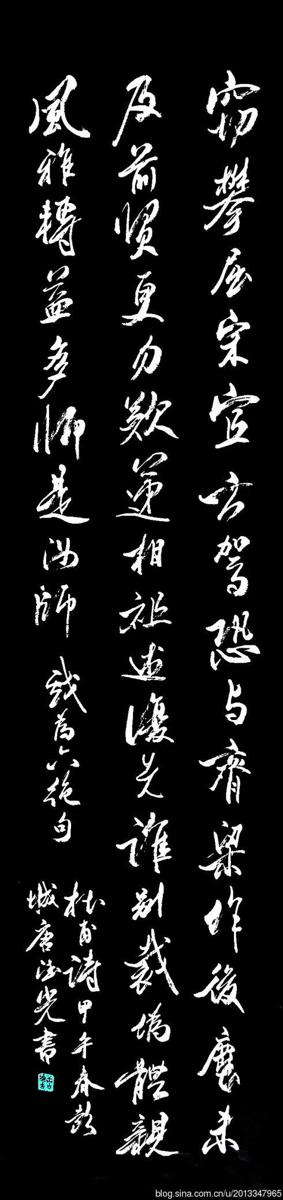 窃攀屈宋宜方駕恐与齊梁作後塵未
及前賢更勿疑遞相祖述復先誰别裁偽體親
風雅轉益多師是汝師 戲為六絕句
杜甫詩甲午春彭
城唐光書
blog.sina.com.cn/u/2013347965